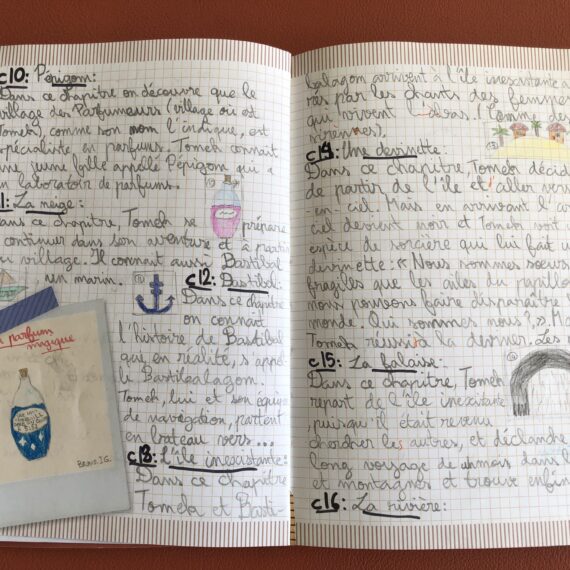 c10: Pépigom:
Dans ce chapitre on découvre que le
village des Parfumeurs (village où est
Tomek), comme son nom l'indique, est
spécialiste en parfums. Tomek connait
une jeune fille appelé Pépigom qui a
un laboratoir de parfums.
La neige:
Dans ce chapitre, Tomek se prépare
continuer dans son aventure et à partir
du village. Il connait aussi Bastibal
un marin.
c12: Bastibal:
Dans ce chapitre
on connait
l'histoire de Bastibal
que en réalité, s'appel
le Bastibalagom.
Tomek, lui et son équipe
de navegation, partent
en bateau vers...
c13: L'île inexistante:
Dans ce chapitre
Tomek et Basti-
parfum
magique
BRUNO J.G.
balagom arrivent à l'île inexistante a
rés par les chants des femmes
qui vivent là-bas. (Comme des
sirennes).
c14: Une devinette:
Dans ce chapitre, Tomek décid
de partir de l'île et aller vers
-en-ciel. Mais en arrivant l'
ciel devient noir et Tomek voit
espèce de sorcière qui lui fait u
devinette: « Nous sommes soeurs,
fragiles que les ailes du papillo
nous pouvons faire disparaître l
monde. Qui sommes nous? ». Ma
Tomek réussit à la deriner. Les
c15: La falaise:
Dans ce chapitre, Tomek
repart de l'île inexistante,
puisqu'il était revenu
chercher les autres, et déclanche
long voyage de un mois dans l
et montagnes et trouve enfin
c16: La rivière: